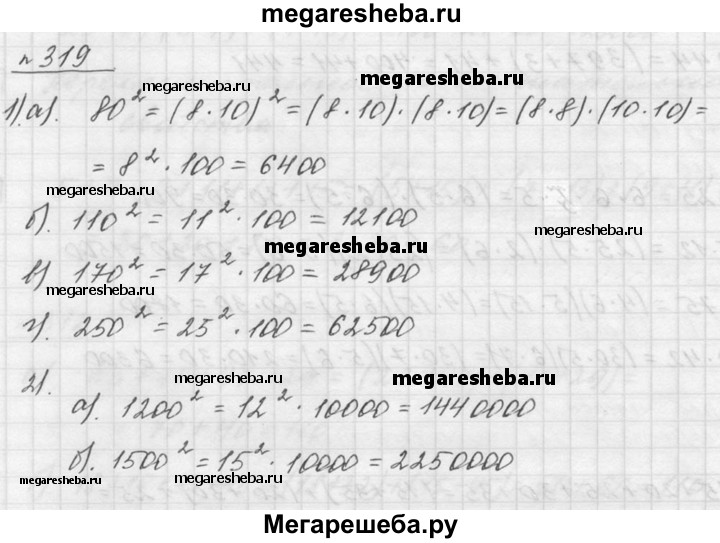 megaresheba.ru
№ 319
megaresheba.ru megaresheba.ru
1) а). 80² = (8 · 10)² = (8 · 10) · (8 · 10) = (8 · 8) · (10 · 10) =
= 8² · 100 = 6400
megaresheba.ru
б). 110² = 11² · 100 = 12100
megaresheba.ru
megaresheba.ru
в) 170² = 17² · 100 = 28900
megaresheba.ru
г). 250² = 25² · 100 = 62500
megaresheba.ru megaresheba.ru
2).
а). 1200² = 12² · 10000 = 1440000
б). 1500² = 15² · 10000 = 2250000
megaresheba.ru megaresheba.ru
Мегарешеба.ру